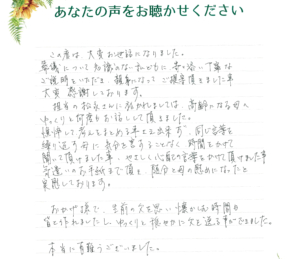 あなたの声をお聴かせください
この度は大変お世話になりました。
葬儀について知識のない私たちに寄り添い丁寧な
ご説明をいただき 親身になって ご提案頂きました事
大変 感謝しております。
担当の松永さんに於かれましては、高齢になる母に
ゆっくりと何度もお話しして頂きました。
後悔して考えをまとめる事も出来ず、同じ言葉を
繰り返す母に 時間をかけて
聞いて頂けました事、やさしく心ある言葉をかけて頂けました事
お手紙まで頂き 随分と母の慰めになったと
実感しております。
おかげ様で、生前の父を思い 懐かしむ時間が
皆と作れましたし、ゆっくりと穏やかに父を送る事ができました。
本当に有難うございました。